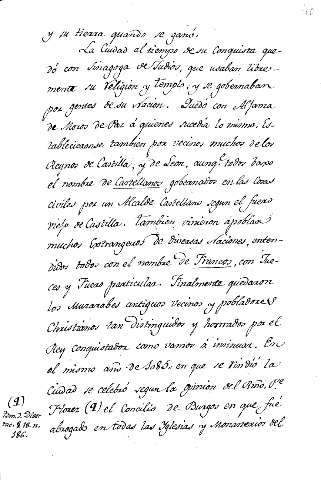 y su tierra quando se ganó.
La Ciudad al tiempo de su Conquista que-
dó con Sinagoga de Judios, que usaban libre-
mente su Religion y Templo, y se gobernaban
por gentes de su Nacion. Quedó con Aljama
de Moros de Paz á quienes sucedia lo mismo. Es-
tablecieronse tambien por vecinos muchos de los
Reynos de Castilla, y de Leon, aunq.e todos baxo
el nombre de Castellanos gobernados en las cosas
civiles por un Alcalde Castellano segun el fuero
viejo de Castilla. Tambien vinieron á poblar
muchos Extrangeros de diversas Naciones, enten-
didos todos con el nombre de Francos, con Jue-
ces y Fueros particular. Finalmente quedaron
los Muzarabes antiguos vecinos y pobladores
Christianos tan distinguidos y honrrados por el
Rey conquistador como vamos á insinuar. En
el mismo año de 1085 en que se rindió la
Ciudad se celebró segun la opinion del Rmo. P.e
Florez (1) el Concilio de Burgos en que fué
abrogado en todas las Iglesias y Monasterios del
(1)
Tom. 3. Diser
n.
186.